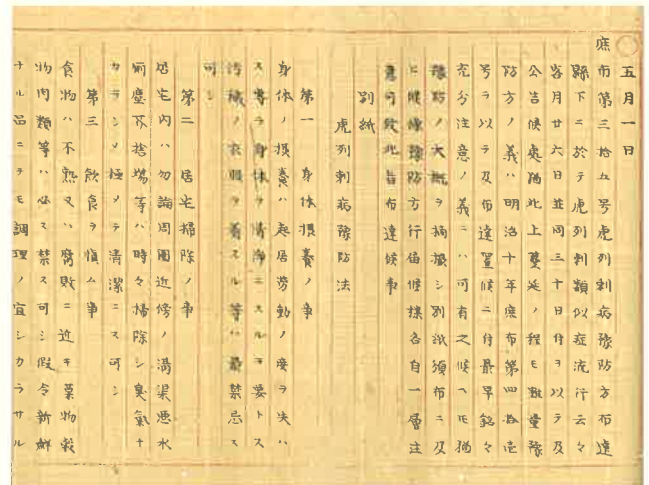 五月一日
庶布第三拾五号虎列剌病豫防方布達
縣下ニ於テ虎列剌類似症流行云々
客月廿六日並同三十日付ヲ以テ及
公告候處猶此上蔓延ノ程モ難量豫
防方ノ義ハ明治十年庶布第四拾壱
号ヲ以テ及布達置候ニ付最早銘々
充分注意ノ義ニハ可有之候ヘ共猶
豫防ノ大概ヲ摘撮シ別紙頒布ニ及
候條豫防方行届候様各自一層注
意可致此旨布達候事
別紙
虎列剌病豫防法
第一 身体摂養ノ事
身体ノ摂養ハ起居労動ノ度ヲ失ハ
ス専ラ身体ヲ清浄ニスルヲ要トス
汚穢ノ衣服ヲ着スル等ハ最禁忌ス
可シ
第二 居宅掃除ノ事
居宅内ハ勿論周囲近傍ノ溝渠悪水
厠塵芥捨場等ハ時々掃除シ臭氣ナ
カラシメ極メテ清潔ニス可シ
第三 飲食ヲ慎ム事
食物ハ不熟又ハ腐敗ニ近キ菓物穀
物肉類等ハ必ス禁ス可シ假令新鮮
ナル品ニテモ調理ノ宜シカラサル